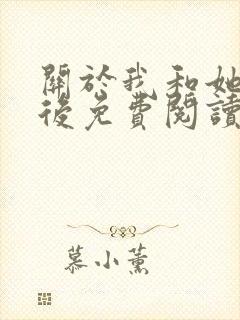 關於我和她
後免費閱讀
慕小薰